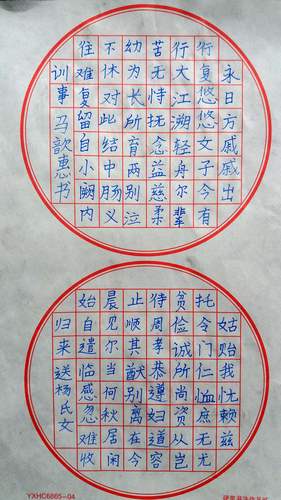 永日方戚戚出
行复悠悠女子今有
行大江溯轻舟尔辈
苦无恃抚念益慈柔
幼为长所育两别泣
不休对此结中肠义
往难复留自小阙内
训事 马歆惠书
姑贻我忧赖兹
托令门仁恤庶无尤
贫俭诚所尚资从岂
待周孝恭遵妇道容
止顺其猷别离在今
晨见尔当何秋居闲
始自遣临感忽难收
归来 送杨氏女
YXHC6865-04